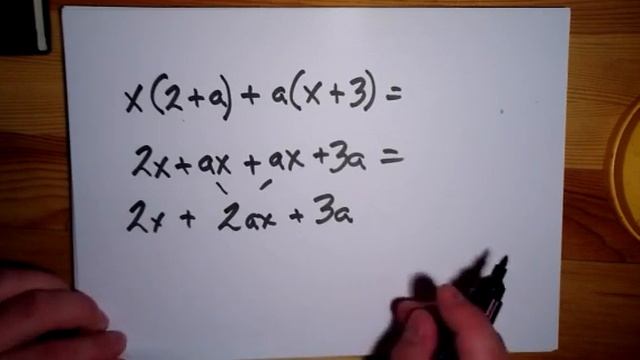 x(2+a) + a(x+3) =
2x + ax + ax + 3a =
2x + 2ax + 3a